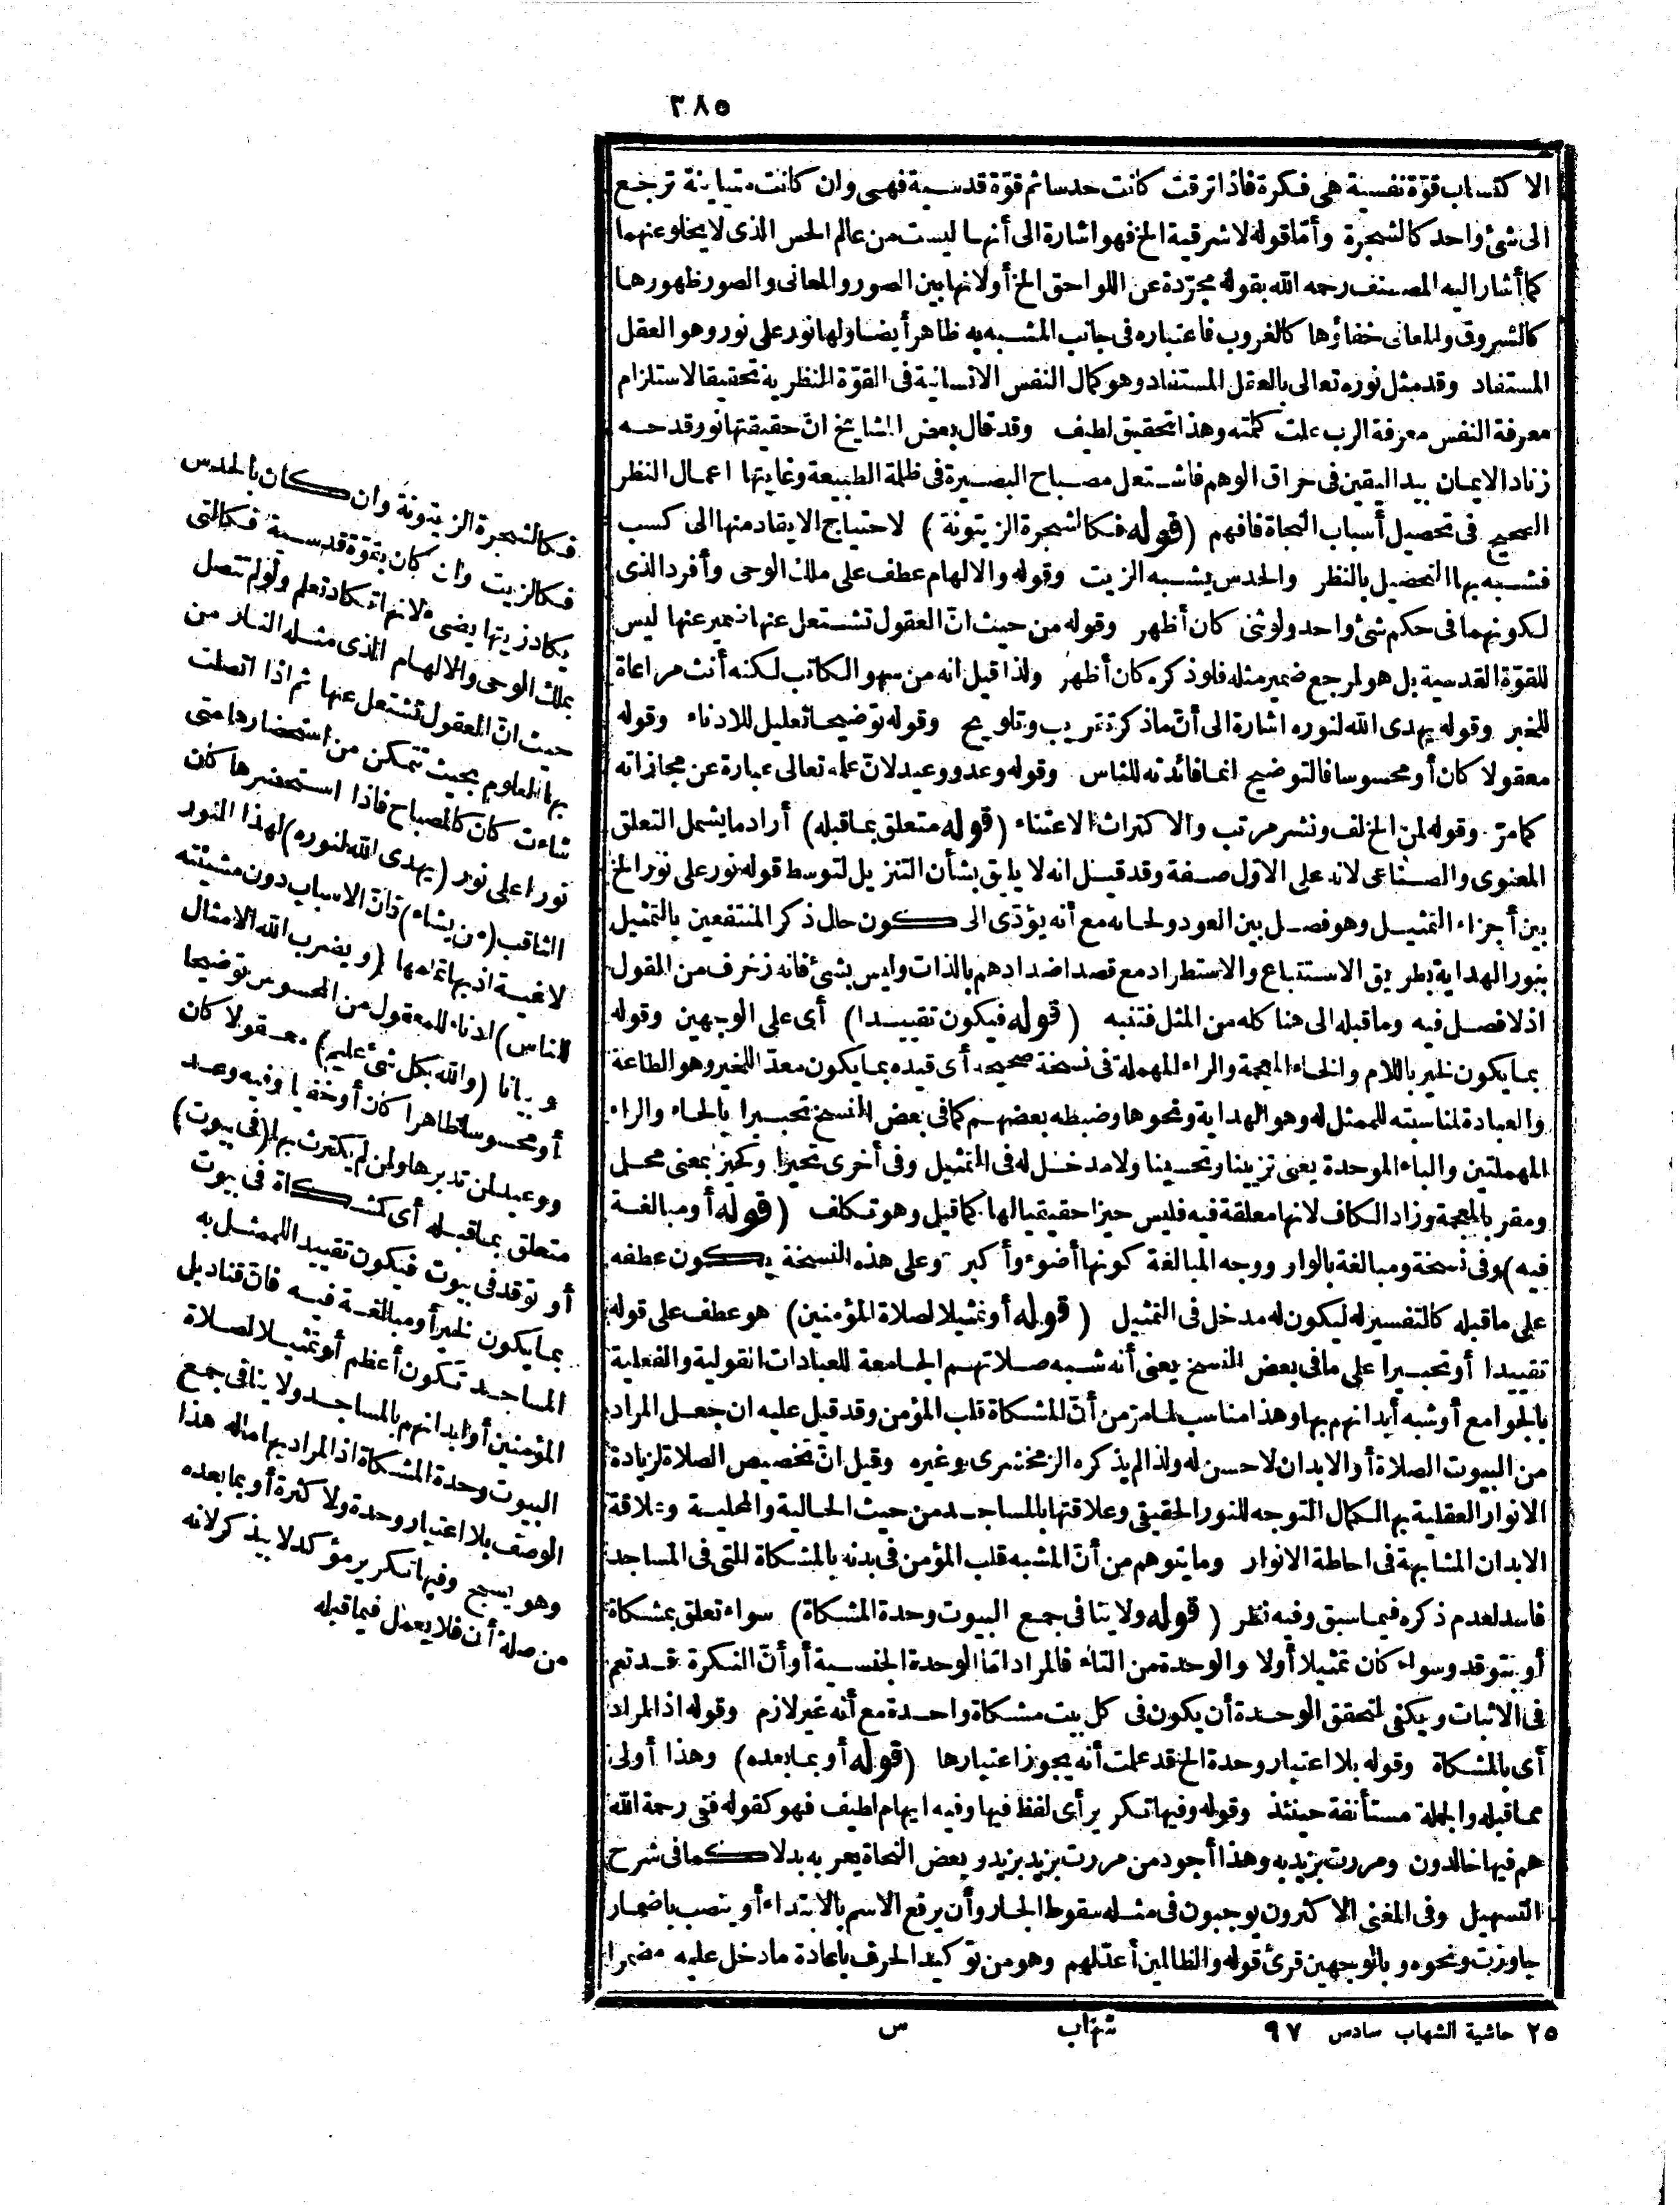 ٣٨٥
الاكتساب قوّة نفسية هى فكرة فاذا ترقت كانت حدسا ثم قوّة قدسية فهى وان كانت متباينة ترجع
الى شئ واحد كالشجرة وأمّا قوله لاشرقية الخ فهو اشارة الى أنها ليست من عالم الحس الذى لا يخلو عنهما
كما أشار اليه المصنف رحمه الله بقوله مجرّدة عن اللواحق الخ أولانها بين الصور والمعانى والصور ظهورها
كالشروق والمعانى خفاؤها كالغروب فاعتباره فى جانب المشبه به ظاهر أيضا ولها نور على نور وهو العقل
المستفاد وقد مثل نوره تعالى بالعقل المستفاد وهو كمال النفس الانسانية فى القوّة النظرية تحقيقا لاستلزام
معرفة النفس معرفة الرب علت كلمته وهذا تحقيق لطيف وقد قال بعض المشايخ انّ حقيقتها نور قدحه
زناد الايمان بيد اليقين فى حراق الوهم فاشتعل مصباح البصيرة فى ظلمة الطبيعة وغايتها اعمال النظر
الصحيح فى تحصيل أسباب النجاة فافهم (قوله فكالشجرة الزيتونة) لاحتياج الايقاد منها الى كسب
فشبه بها التحصيل بالنظر والحدس يشبه الزيت وقوله والالهام عطف على ملك الوحى وأفرد الذى
لكونهما فى حكم شئ واحد ولو ثنى كان أظهر وقوله من حيث انّ العقول تشتعل عنها ضمير عنها ليس
للقوّة القدسية بل هو لمرجع ضمير مثله فلو ذكره كان أظهر ولذا قيل انه من سهو الكاتب لكنه أنث مراعاة
للخبر وقوله يهدى الله لنوره اشارة الى أنّ ما ذكر تقريب وتلويح وقوله توضيحا تعليل للادناء وقوله
معقولا كان أو محسوسا فالتوضيح انما فائدته للناس وقوله وعد ووعيد لانّ علمه تعالى عبارة عن مجازاته
كما مرّ وقوله لمن الخ لف ونشر مرتب والاكتراث الاعتناء (قوله متعلق بما قبله) أراد ما يشمل التعلق
المعنوى والصناعى لانه على الاوّل صفة وقد قيل انه لا يليق بشأن التنزيل لتوسط قوله نور على نور الخ
بين أجزاء التمثيل وهو فصل بين العود ولحائه مع أنه يؤدّى الى كون حال ذكر المنتفعين بالتمثيل
بنور الهداية بطريق الاستتباع والاستطراد مع قصد اضدادهم بالذات وليس بشئ فانه زخرف من القول
اذ لا فصل فيه وما قبله الى هنا كله من المثل فتنبه (قوله فيكون تقييدا) أى على الوجهين وقوله
بما يكون لخير باللام والخاء المعجمة والراء المهملة فى نسخة صحيحة أى قيده بما يكون معدّا للخير وهو الطاعة
والعبادة لمناسبته للممثل له وهو الهداية ونحوها وضبطه بعضهم كما فى بعض النسخ تحبيرا بالحاء والراء
المهملتين والباء الموحدة يعنى تزيينا وتحسينا ولا مدخل له فى التمثيل وفى أخرى تحيزا وكحيز بمعنى محل
ومقر بالمعجمة وزاد الكاف لانها معلقة فيه فليس حيزا حقيقيا لها كما قيل وهو تكلف (قوله أو مبالغة
فيه) وفى نسخة ومبالغة بالواو ووجه المبالغة كونها أضوء وأكبر وعلى هذه النسخة يكون عطفه
على ما قبله كالتفسير له ليكون له مدخل فى التمثيل (قوله أو تمثيلا لصلاة المؤمنين) هو عطف على قوله
تقييدا أو تحبيرا على ما فى بعض النسخ يعنى أنه شبه صلاتهم الجامعة للعبادات القولية والفعلية
بالجوامع أو شبه أبدانهم بها وهذا مناسب لما مرّ من أنّ المشكاة قلب المؤمن وقد قيل عليه ان جعل المراد
من البيوت الصلاة أو الابدان لا حسن له ولذا لم يذكره الزمخشرى وغيره وقيل انّ تخصيص الصلاة لزيادة
الانوار العقلية بها لكمال التوجه للنور الحقيقى وعلاقتها بالمساجد من حيث الحالية والمحلية وعلاقة
الابدان المشابهة فى احاطة الانوار وما يتوهم من أنّ المشبه قلب المؤمن فى بدنه بالمشكاة التى فى المساجد
فاسد لعدم ذكره فيما سبق وفيه نظر (قوله ولا ينافى جمع البيوت وحدة المشكاة) سواء تعلق بمشكاة
أو بتوقد وسواء كان تمثيلا أولا والوحدة من التاء فالمراد امّا الوحدة الجنسية أو أنّ النكرة قد تعم
فى الاثبات ويكفى لتحقق الوحدة أن يكون فى كل بيت مشكاة واحدة مع أنه غير لازم وقوله اذ المراد
أى بالمشكاة وقوله بلا اعتبار وحدة الخ قد علمت أنه يجوز اعتبارها (قوله أو بما بعده) وهذا أولى
مما قبله والجملة مستأنفة حينئذ وقوله وفيها تكرير أى لفظ فيها وفيه ايهام لطيف فهو كقوله ففى رحمة الله
هم فيها خالدون ومررت بزيد به وهذا أجود من مررت بزيد بزيد وبعض النحاة يعربه بدلا كما فى شرح
التسهيل وفى المغنى الاكثرون يوجبون فى مثله سقوط الجار وأن يرفع الاسم بالابتداء أو ينصب باضمار
جاوزت ونحوه وبالوجهين قرئ قوله والظالمين أعدّ لهم وهو من توكيد الحرف باعادة ما دخل عليه مضمرا
فكالشجرة الزيتونة وان كان بالحدس
فكالزيت وان كان بقوّة قدسية فكالتى
يكاد زيتها يضىء لانها تكاد تعلم ولو لم تتصل
بملك الوحى والالهام الذى مثله النار من
حيث انّ العقول تشتعل عنها ثم اذا اتصلت
بها العلوم بحيث تتمكن من استحضارها متى
شاءت كان كالمصباح فاذا استحضرها كان
نورا على نور (يهدى الله لنوره) لهذا النور
الثاقب (من يشاء) فانّ الاسباب دون مشيئته
لاغية اذ بها تمامها (ويضرب الله الامثال
للناس) ادناء للمعقول من المحسوس توضيحا
وبيانا (والله بكل شئ عليم) معقولا كان
أو محسوسا ظاهرا كان أو خفيا وفيه وعد
ووعيد لمن تدبرها ولمن لم يكترث بها (فى بيوت)
متعلق بما قبله أى كمشكاة فى بيوت
أو توقد فى بيوت فيكون تقييدا للممثل به
بما يكون لخير أو مبالغة فيه فانّ قناديل
المساجد تكون أعظم أو تمثيلا لصلاة
المؤمنين أو أبدانهم بالمساجد ولا ينافى جمع
البيوت وحدة المشكاة اذ المراد بها ماله هذا
الوصف بلا اعتبار وحدة ولا كثرة أو بما بعده
وهو يسبح وفيها تكرير مؤكد لا بيذكر لانه
من صلة أن فلا يعمل فيما قبله
٢٥ حاشية الشهاب سادس ٩٧ شهاب س